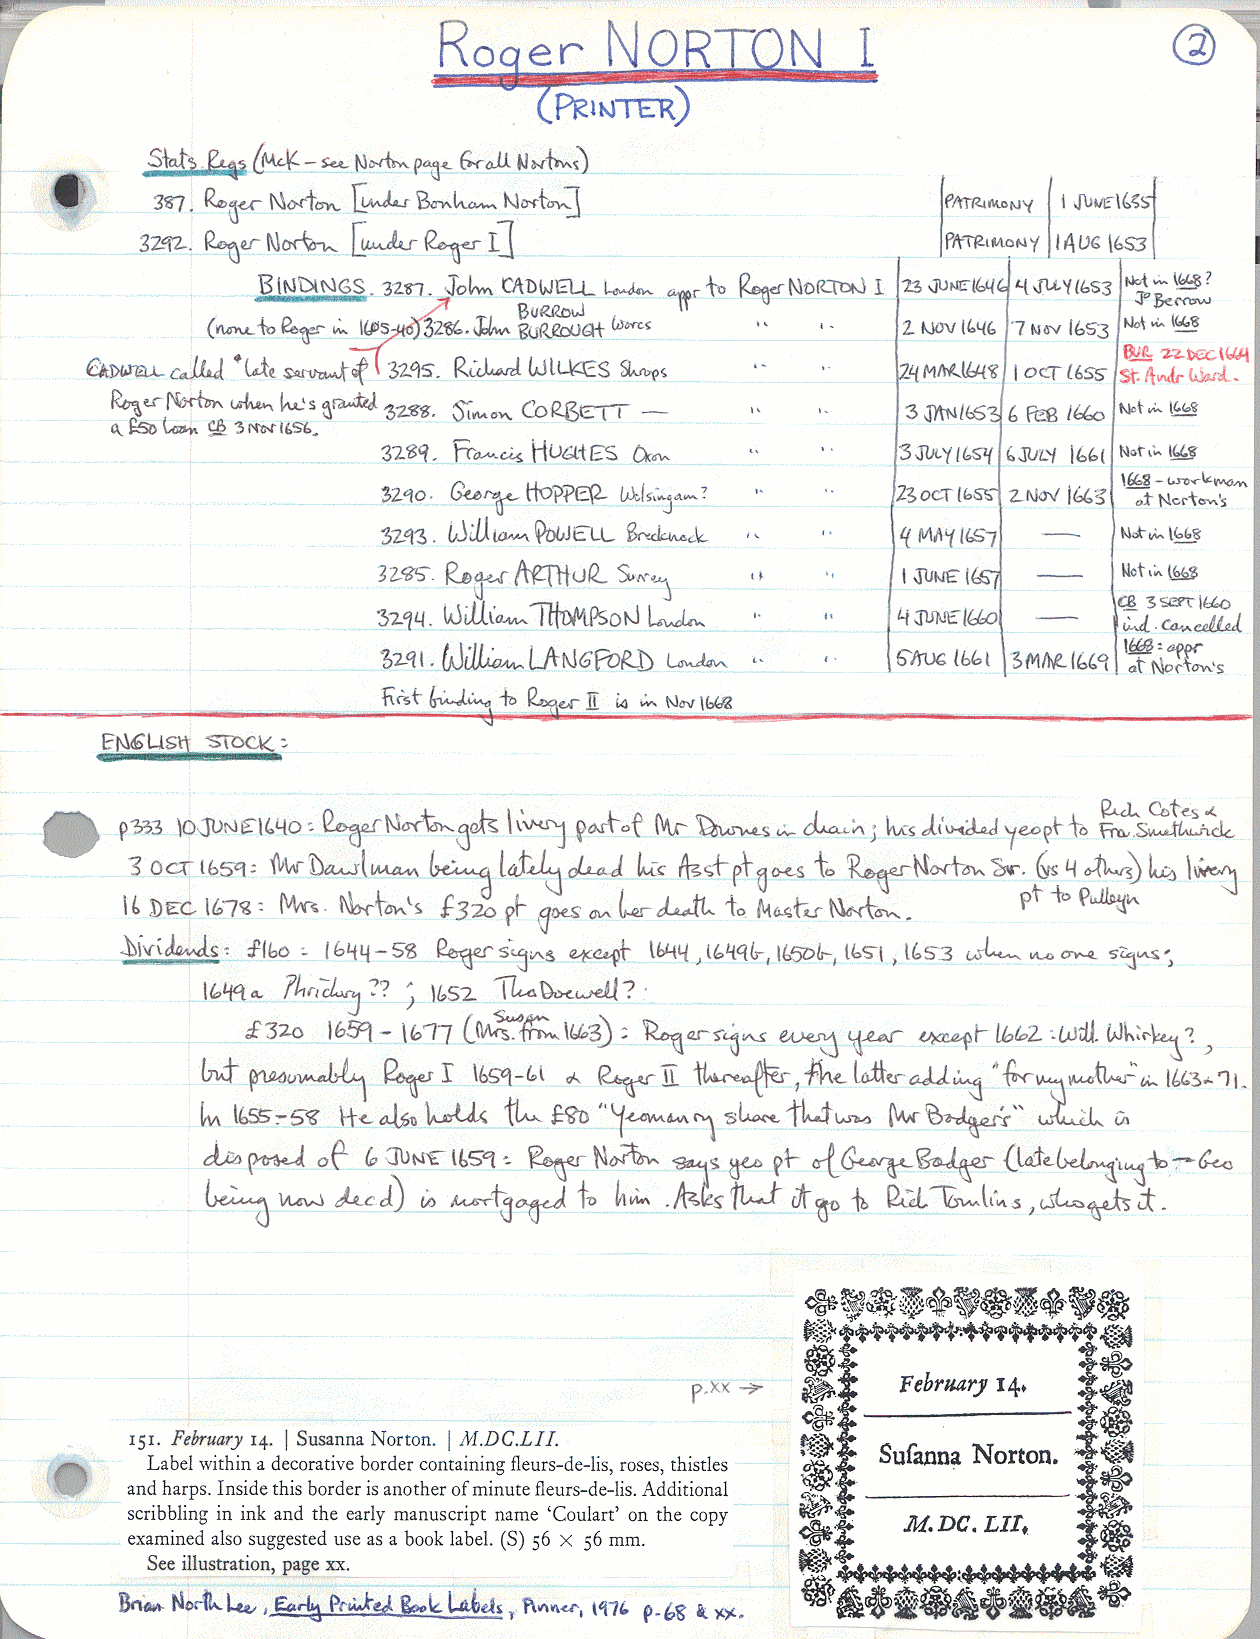 Roger NORTON I
2
(PRINTER)
Stats. Regs (McK – see Norton page for all Nortons)
387. Roger Norton [under Bonham Norton] PATRIMONY 1 JUNE 1635
3292. Roger Norton [under Roger I] PATRIMONY 1 AUG 1653
BINDINGS. 3287. John CADWELL London appr to Roger NORTON I 23 JUNE 1646 4 JULY 1653 Not in 1668? Jo Berrow
(none to Roger in 1605-40) 3286. John BURROW BURROUGH Worcs " " 2 NOV 1646 7 NOV 1653 Not in 1668
CADWELL called "late servant of 3295. Richard WILKES Shrops " " 24 MAR 1648 1 OCT 1655 BUR 22 DEC 1664 St. Andr Ward.
Roger Norton when he's granted 3288. Simon CORBETT — " " 3 JAN 1653 6 FEB 1660 Not in 1668
a £50 loan CB 3 Nov 1656.
3289. Francis HUGHES Oxon " " 3 JULY 1654 6 JULY 1661 Not in 1668
3290. George HOPPER Walsingam? " " 23 OCT 1655 2 NOV 1663 1668 – workman at Norton's
3293. William POWELL Brecknock " " 4 MAY 1657 — Not in 1668
3285. Roger ARTHUR Surrey " " 1 JUNE 1657 — Not in 1668
3294. William THOMPSON London " " 4 JUNE 1660 — CB 3 SEPT 1660 ind. cancelled
3291. William LANGFORD London " " 5 AUG 1661 3 MAR 1669 1668: appr at Norton's
First binding to Roger II is in Nov 1668
ENGLISH STOCK:
p333 10 JUNE 1640: Roger Norton gets livery part of Mr Downes in chain; his divided yeo pt to Rich Cotes & Fra. Smethwick
3 OCT 1659: Mr Dawlman being lately dead his Asst pt goes to Roger Norton Sr. (vs 4 others) his livery
pt to Pulleyn
16 DEC 1678: Mrs. Norton's £320 pt goes on her death to Master Norton.
Dividends: £160: 1644-58 Roger signs except 1644, 1649b, 1650b, 1651, 1653 when no one signs;
1649a Phridwy??; 1652 Tho Doewell?
£320 1659-1677 (Mrs. Susan from 1663): Roger signs every year except 1662: Will. Whirkey?,
but presumably Roger I 1659-61 & Roger II thereafter, the latter adding "for my mother" in 1663 & 71.
In 1655-58 He also holds the £80 "Yeomanry share that was Mr Badger's" which is
disposed of 6 JUNE 1659: Roger Norton says yeo pt of George Badger (late belonging to — Geo
being now decd) is mortgaged to him. Asks that it go to Rich Tomlins, who gets it.
p.xx →
February 14.
Suſanna Norton.
M.DC.LII.
151. February 14. | Susanna Norton. | M.DC.LII.
Label within a decorative border containing fleurs-de-lis, roses, thistles
and harps. Inside this border is another of minute fleurs-de-lis. Additional
scribbling in ink and the early manuscript name 'Coulart' on the copy
examined also suggested use as a book label. (S) 56 × 56 mm.
See illustration, page xx.
Brian North Lee, Early Printed Book Labels, Pinner, 1976 p.68 & xx.